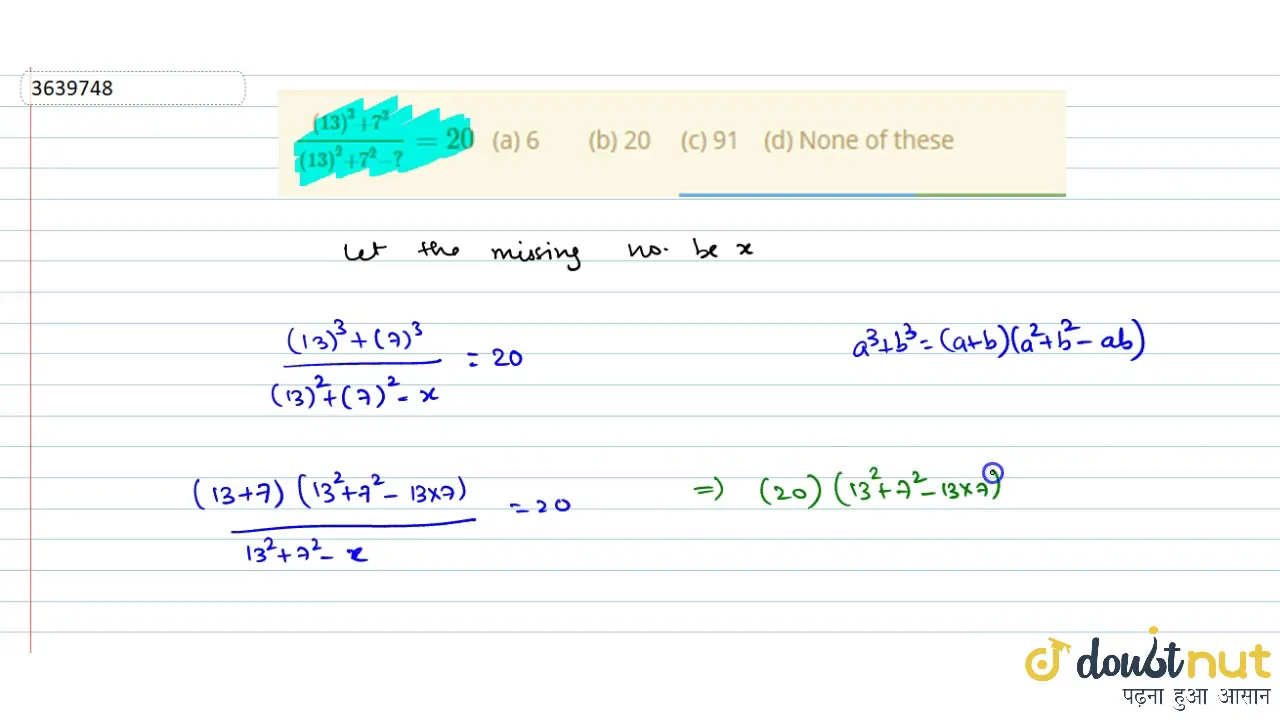 3639748
(13)³+7³ / (13)²+7²−? = 20 (a) 6 (b) 20 (c) 91 (d) None of these
Let the missing no. be x
(13)³+(7)³ / (13)²+(7)²−x = 20
a³+b³=(a+b)(a²+b²−ab)
(13+7)(13²+7²−13×7) / 13²+7²−x = 20
=) (20)(13²+7²−13×7)
doubtnut
पढ़ना हुआ आसान